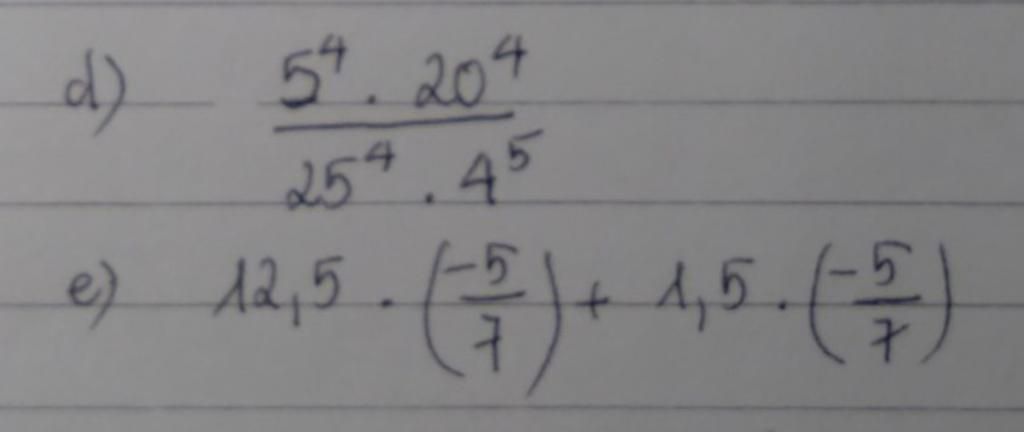 d) \frac{5^4 . 20^4}{25^4 . 4^5}
e) 12,5 . \left(\frac{-5}{7}\right) + 1,5 . \left(\frac{-5}{7}\right)